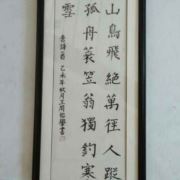 山鳥飛絕萬徑人蹤
孤舟蓑笠翁獨釣寒
雲
唐詩一首 乙未年秋月王周裕學書